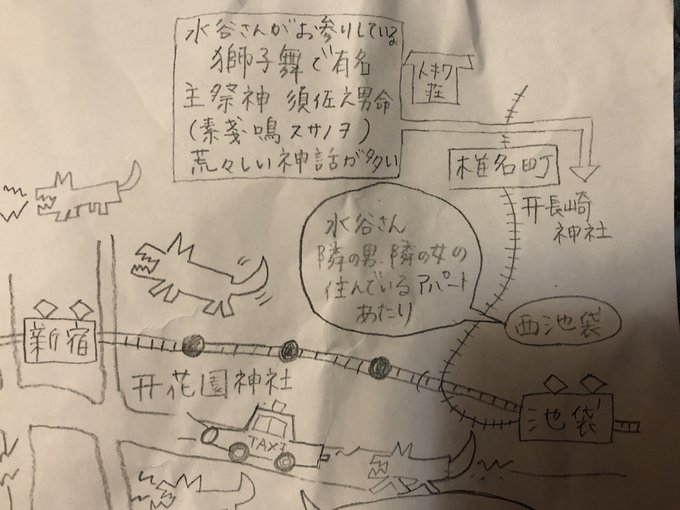 水谷さんがお参りしている
獅子舞で有名
主祭神 須佐之男命
(素戔嗚 スサノヲ)
荒々しい神話が多い
トキワ
荘
椎名町
长崎
神社
水谷さん
隣の男、隣の女の
住んでいるアパート
あたり
西池袋
新宿
花園神社
TAXI
池袋